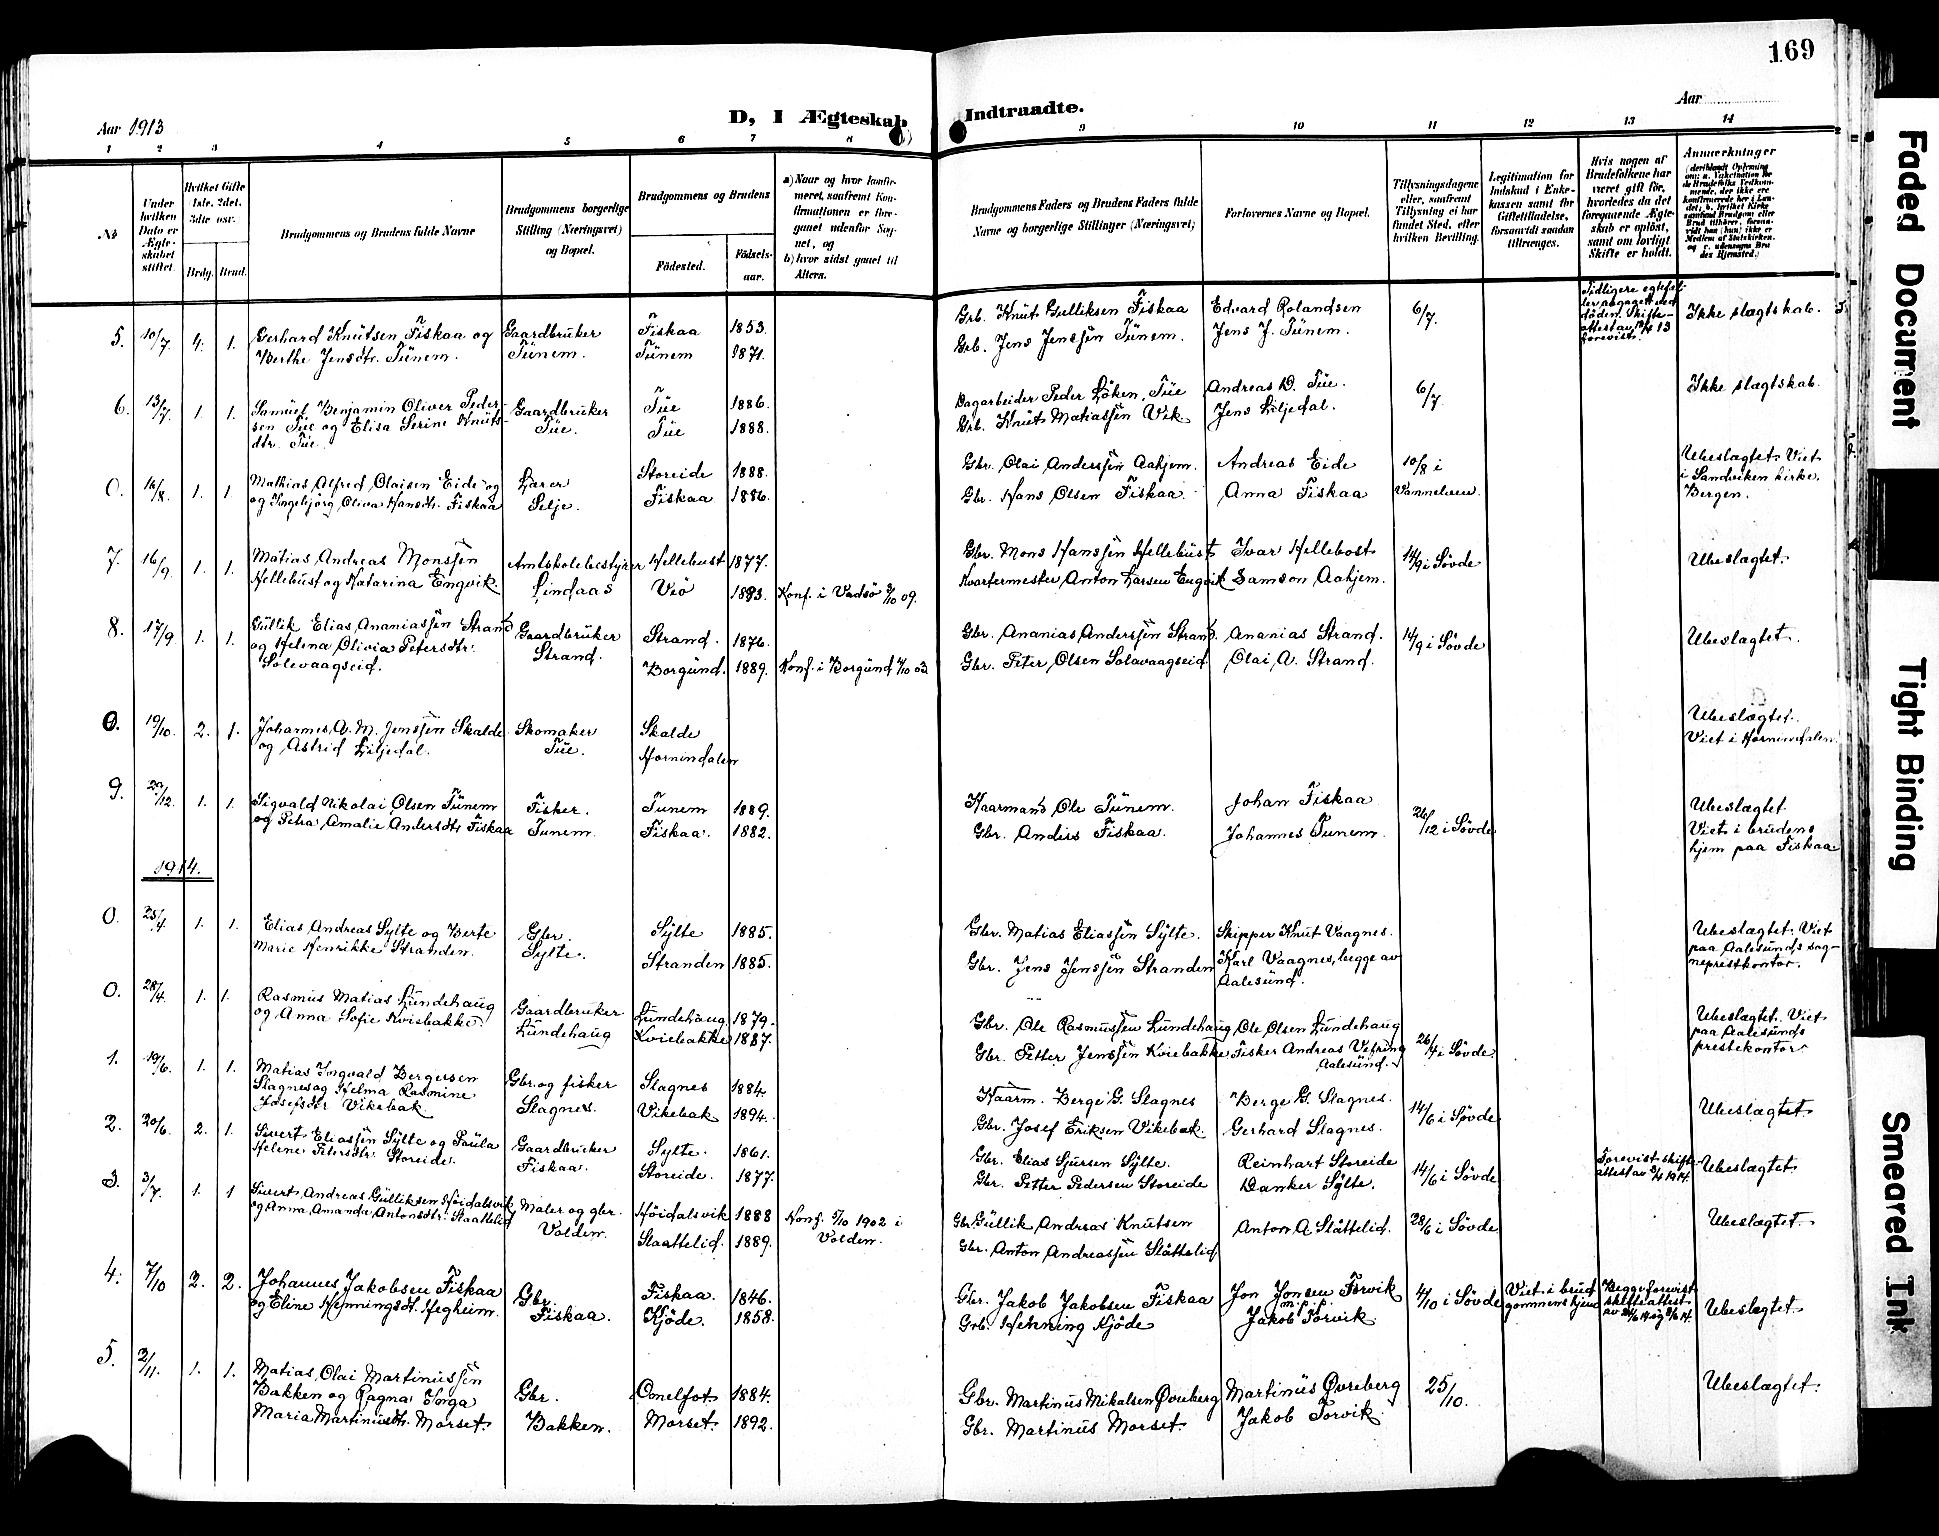 169
Aar 1913
D, I Ægteskab
Indtraadte.
Aar
1 2 3 4 5 6 7 8 9 10 11 12 13 14
No
Under hvilken Dato er Ægteskabet stiftet.
Hvilket Gifte (1ste, 2det, 3die osv.
Brdg. Brud.
Brudgommens og Brudens fulde Navne
Brudgommens borgerlige Stilling (Næringsvei) og Bopæl.
Brudgommens og Brudens
Födested.
Födselsaar.
a) Naar og hvor konfirmeret, saafremt Konfirmationen er foregaaet udenfor Sognet, og
b) hvor sidst gaaet til Alters.
Brudgommens Faders og Brudens Faders fulde Navne og borgerlige Stillinger (Næringsvei)
Forlovernes Navne og Bopæl.
Tillysningsdagene eller, saafremt Tillysning ei har fundet Sted, efter hvilken Bevilling.
Legitimation for Indskud i Enkekassen samt for Giftetilladelse, forsaavidt saadan tiltrænges.
Hvis nogen af Brudefolkene har været gift för, hvorledes da det foregaaende Ægteskab er oplöst, samt om lovligt Skifte er holdt.
Anmerkninger
5. 10/7 4. 1. Gerhard Knutsen Fiskaa og
Berthe Jensdtr. Tunem.
Gaardbruker
Tunem.
Fiskaa 1853.
Tunem 1871.
Grb. Knut Gulliksen Fiskaa
Grb. Jens Jenssen Tunem.
Edvard Rolandsen
Jens J. Tunem.
6/7.
Tidligere egtefeller avgaaet ved
döden. Skifte-
forevist.
Ikke slægtskab.
6. 13/7. 1. 1. Samuel Benjamin Oliver Peder-
sen Tue og Elisa Serine Knuts-
dtr. Tue.
Gaardbruker
Tue.
Tue 1886.
Tue 1888.
Dagarbeider Peder Löken, Tue
Grb. Knut Matiassen Vik
Andreas D. Tue.
Jens Liljedal.
6/7.
Ikke slægtskab.
0. 16/8. 1. 1 Mathias Alfred Olaisen Eide og
og Ingebjörg Oliva Hansdtr. Fiskaa
Lærer
Selje.
Storeide 1888.
Fiskaa 1886.
Gbr. Olai Anderssen Aahjem.
Gbr. Hans Olsen Fiskaa.
Andreas Eide
Anna Fiskaa
10/8 i
Vannelven.
Ubeslægtet. Viet
i Sandviken kirke,
Bergen.
7. 16/9. 1. 1. Matias Andreas Monssen
Hellebust og Katarina Engvik.
Amtskolebestyrer
Lindaas
Hellebust 1877.
Viö 1883.
Konf. i Vadsö 3/10 09.
Gbr. Mons Hanssen Hellebust
Kvartermester Anton Larsen Engvik
Ivar Hellebost
Samson Aahjem.
14/9 i Søvde
Ubeslægtet.
8. 17/9. 1. 1. Gullik Elias Ananiassen Strand
og Helena Olivia Petersdtr.
Solevaagseid.
Gaardbruker
Strand.
Strand. 1876.
Borgund. 1889.
Konf. i Borgund
Gbr. Ananias Anderssen Strand.
Gbr. Peter Olsen Solavaagseid
Ananias Strand.
Olai A. Strand.
14/9 i Søvde
Ubeslægtet.
0. 19/10. 2. 1. Johannes A. M. Jenssen Skalde
og Astrid Liljedal.
Skomaker
Tue.
Skalde
Hornindalen
Ubeslægtet.
Viet i Hornindalen.
9. 29/12. 1. 1. Sigvald Nikolai Olsen Tunem
og Petra Amalie Andersdtr. Fiskaa
Fisker.
Tunem.
Tunem 1889.
Fiskaa. 1882.
Kaarmand Ole Tunem.
Gbr. Anders Fiskaa.
Johan Fiskaa
Johannes Tunem.
26/12 i Søvde
Ubeslægtet.
Viet i brudens
hjem paa Fiskaa.
1914.
0. 25/4. 1. 1. Elias Andreas Sylte og Berte
Marie Henrikke Stranden.
Gbr.
Sylte.
Sylte 1885.
Stranden 1885.
Gbr. Matias Eliassen Sylte.
Gbr. Jens Jenssen Stranden
Skipper Knut Vaagnes.
Karl Vaagnes, begge av
Aalesund.
Ubeslægtet. Viet
paa Aalesunds sog-
neprestkontor.
0. 28/4. 1. 1. Rasmus Matias Lundehaug
og Anna Sofie Kviebakke.
Gaardbruker
Lundehaug
Lundehaug 1879.
Kviebakke 1887.
Gbr. Ole Rasmussen Lundehaug
Gbr. Petter Jenssen Kviebakke
Ole Olsen Lundehaug
Fisker Andreas Vefring
Aalesund.
26/4 i Søvde
Ubeslægtet. Viet
paa Aalesunds
prestekontor.
1. 19/6. 1. 1. Matias Ingvald Bergesen
Slagnes og Helma Rasmine
Josefsdtr. Vikebak.
Gbr. og fisker
Slagnes.
Slagnes 1884.
Vikebak 1894.
Kaarm. Berge G. Slagnes
Gbr. Josef Eriksen Vikebak.
Berge G. Slagnes.
Gerhard Slagnes.
14/6 i Søvde
Ubeslægtet
2. 20/6. 2. 1. Sivert Eliassen Sylte og Paula
Helene Petersdtr. Storeide.
Gaardbruker
Fiskaa.
Sylte. 1861.
Storeide. 1877.
Gbr. Elias Sjursen Sylte.
Gbr. Petter Pedersen Storeide
Reinhart Storeide
Danker Sylte.
14/6 i Søvde
Forevist skifte-
attest av 3/4 1914.
Ubeslægtet
3. 3/7. 1. 1 Sivert Andreas Gulliksen Höidalsvik
og Anna Amanda Antonsdtr. Slaattelid
Maler og gbr.
Volden.
Höidalsvik 1888
Slaattelid. 1889.
Konf. 5/10 1902 i
Volden.
Gbr. Gullik Andreas Knutsen
Gbr. Anton Andreassen Slåttelid
Anton A Slåttelid.
28/6 i Søvde
Ubeslægtet.
4. 7/10 2. 2. Johannes Jakobsen Fiskaa
og Eline Henningsdt. Hegheim.
Gbr.
Fiskaa.
Fiskaa. 1846.
Kjöde. 1858.
Gbr. Jakob Jakobsen Fiskaa
Grb. Henning Kjöde
Jon Jonsen Torvik
m. p. p.
Jakob Torvik.
4/10 i Søvde
Viet i brud-
gommens hjem
Begge forevist
skifteattest
Ubeslægtet
5. 2/11. 1. 1. Matias Olai Martinussen
Bakken og Ragna Torga
Maria Martinusdt. Morset.
Gbr.
Bakken.
Omelfot. 1884.
Morset. 1892.
Gbr. Martinus Mikalsen Øvreberg
Gbr. Martinus Morset.
Martinus Øvreberg
Jakob Torvik.
25/10.
Ubeslægtet.
Faded Document
Tight Binding
Smeared Ink